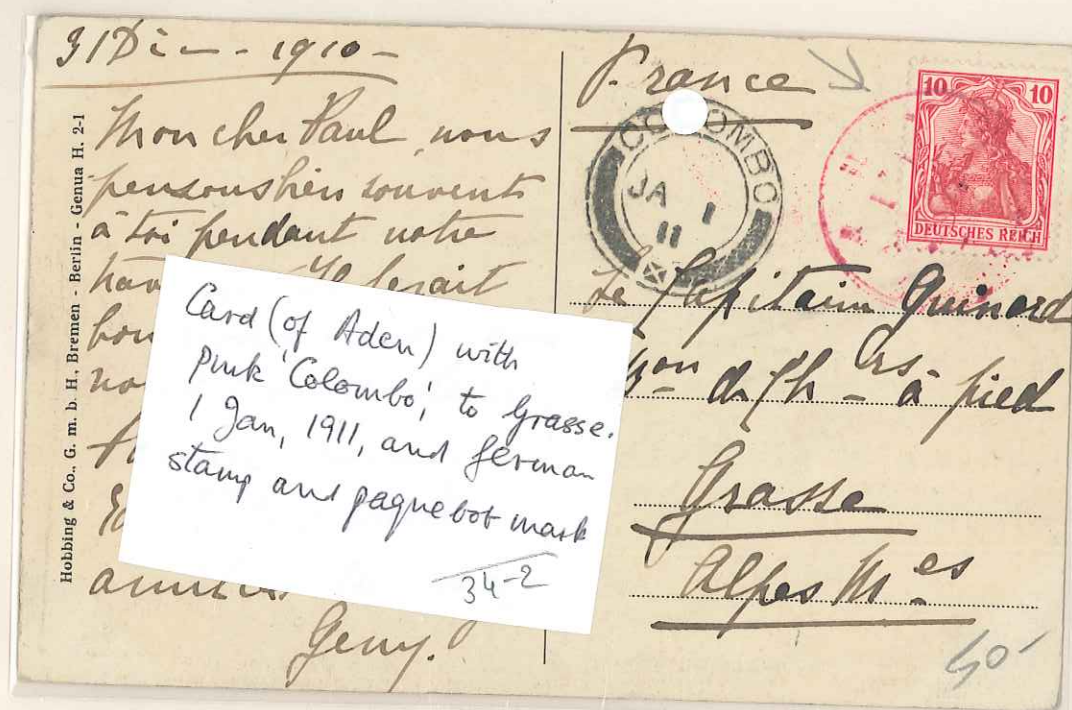 31 Déc - 1910 -
Mon cher Paul, nous
pensons bien souvent
à toi pendant notre
Il ferait
Geny.
Hobbing & Co., G. m. b. H., Bremen - Berlin - Genua H. 2-1
Card (of Aden) with
pink 'Colombo', to Grasse.
1 Jan, 1911, and German
stamp and paquebot mark
34-2
France
COLOMBO
JA 1
11
10 10
DEUTSCHES REICH
Le Capitaine Guinard
on de Ch rs à pied
Grasse
Alpes M es